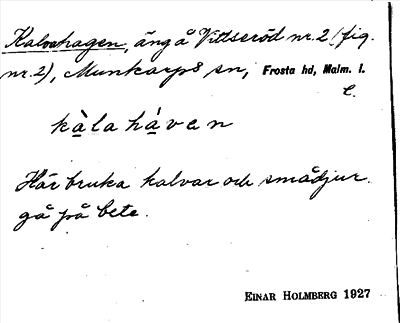 Kalvahagen, äng å Vittseröd nr. 2 (fig.
nr. 2), Munkarps sn, Frosta hd, Malm. l.
l.
kàlaháven
Här bruka kalvar och smådjur
gå på bete.
EINAR HOLMBERG 1927